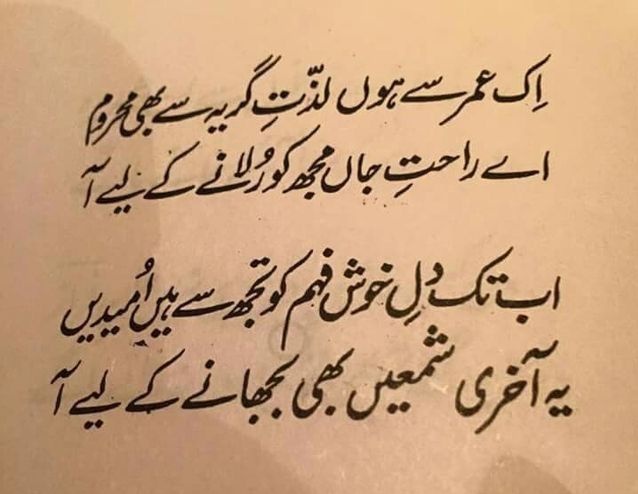 اِک عمر سے ہوں لذّتِ گریہ سے بھی محروم
اے راحتِ جاں مجھ کو رُلانے کے لیے آ
اب تک دلِ خوش فہم کو تجھ سے ہیں اُمیدیں
یہ آخری شمعیں بھی بجھانے کے لیے آ